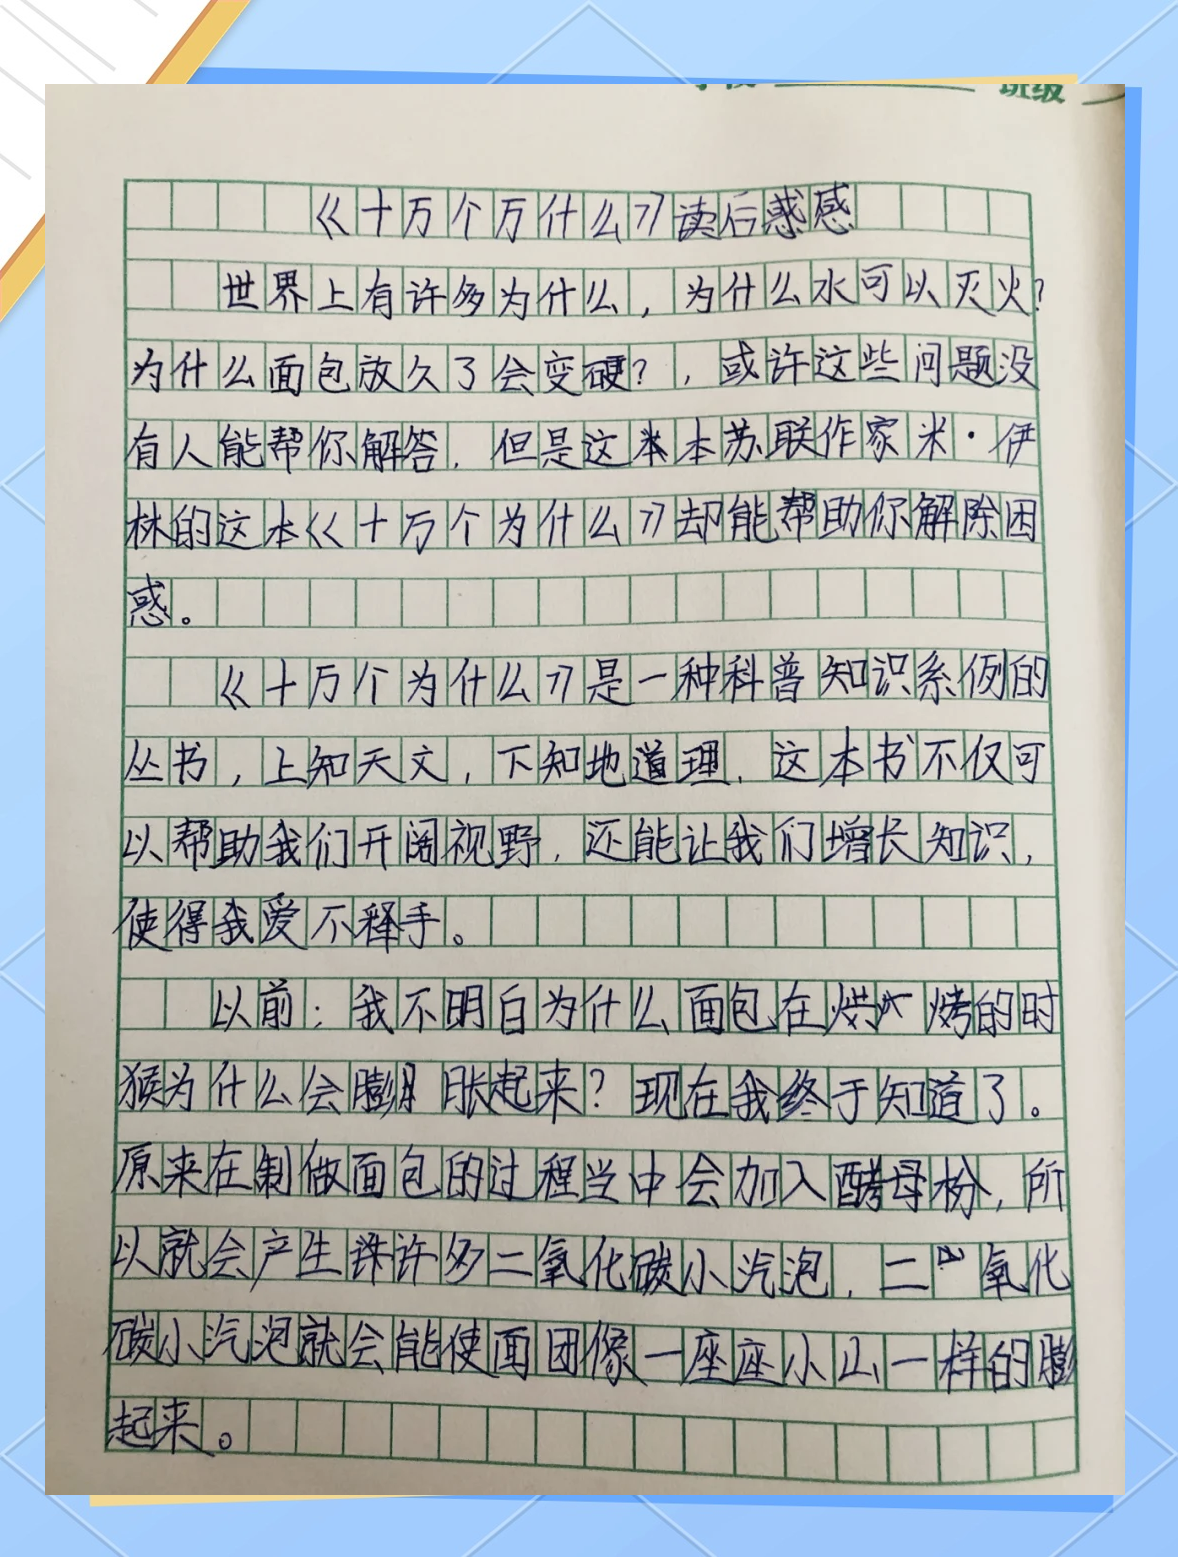 班级
《十万个万什么》读后惑感
世界上有许多为什么，为什么水可以灭火？
为什么面包放久了会变硬？，或许这些问题没
有人能帮你解答，但是这本苏联作家米·伊
林的这本《十万个为什么》却能帮助你解除困
惑。
《十万个为什么》是一种科普知识系例的
丛书，上知天文，下知地道理，这本书不仅可
以帮助我们开阔视野，还能让我们增长知识，
使得我爱不释手。
以前；我不明白为什么面包在烘烤的时
猴为什么会膨胀起来？现在我终于知道了。
原来在制做面包的过程当中会加入酵母粉，所
以就会产生许多二氧化碳小汽泡，二氧化
碳小汽泡就会能使面团像一座座小山一样的膨
起来。